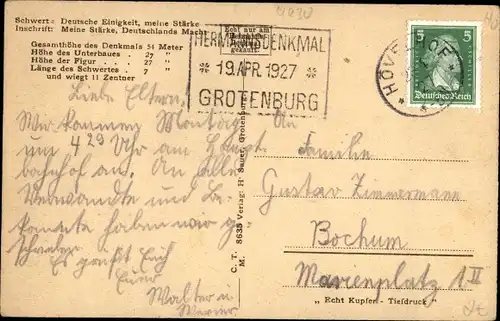 Schwert: Deutsche Einigkeit, meine Stärke
Inschrift: Meine Stärke, Deutschlands Macht
Gesamthöhe des Denkmals 54 Meter
Höhe des Unterbaues 27 "
Höhe der Figur 27 "
Länge des Schwertes 7 "
und wiegt 11 Zentner
Echt nur am
gekauft.
HERMANNSDENKMAL
19.APR.1927
GROTENBURG
HÖVELHOF
5 5
Deutsches Reich
Liebe Eltern,
Wir kommen Montag
um 4 29 Uhr am Haupt-
bahnhof an. An alle
Verwandte und Be-
kannte haben wir g
schrieben
Es grüßt Euch
Euer
Walter u
Werner
C. T. M. 8635 Verlag: H. Sauer, Grotenburg
An
Familie
Gustav Zimmermann
Bochum
Marienplatz 1 II
"Echt Kupfer-Tiefdruck"